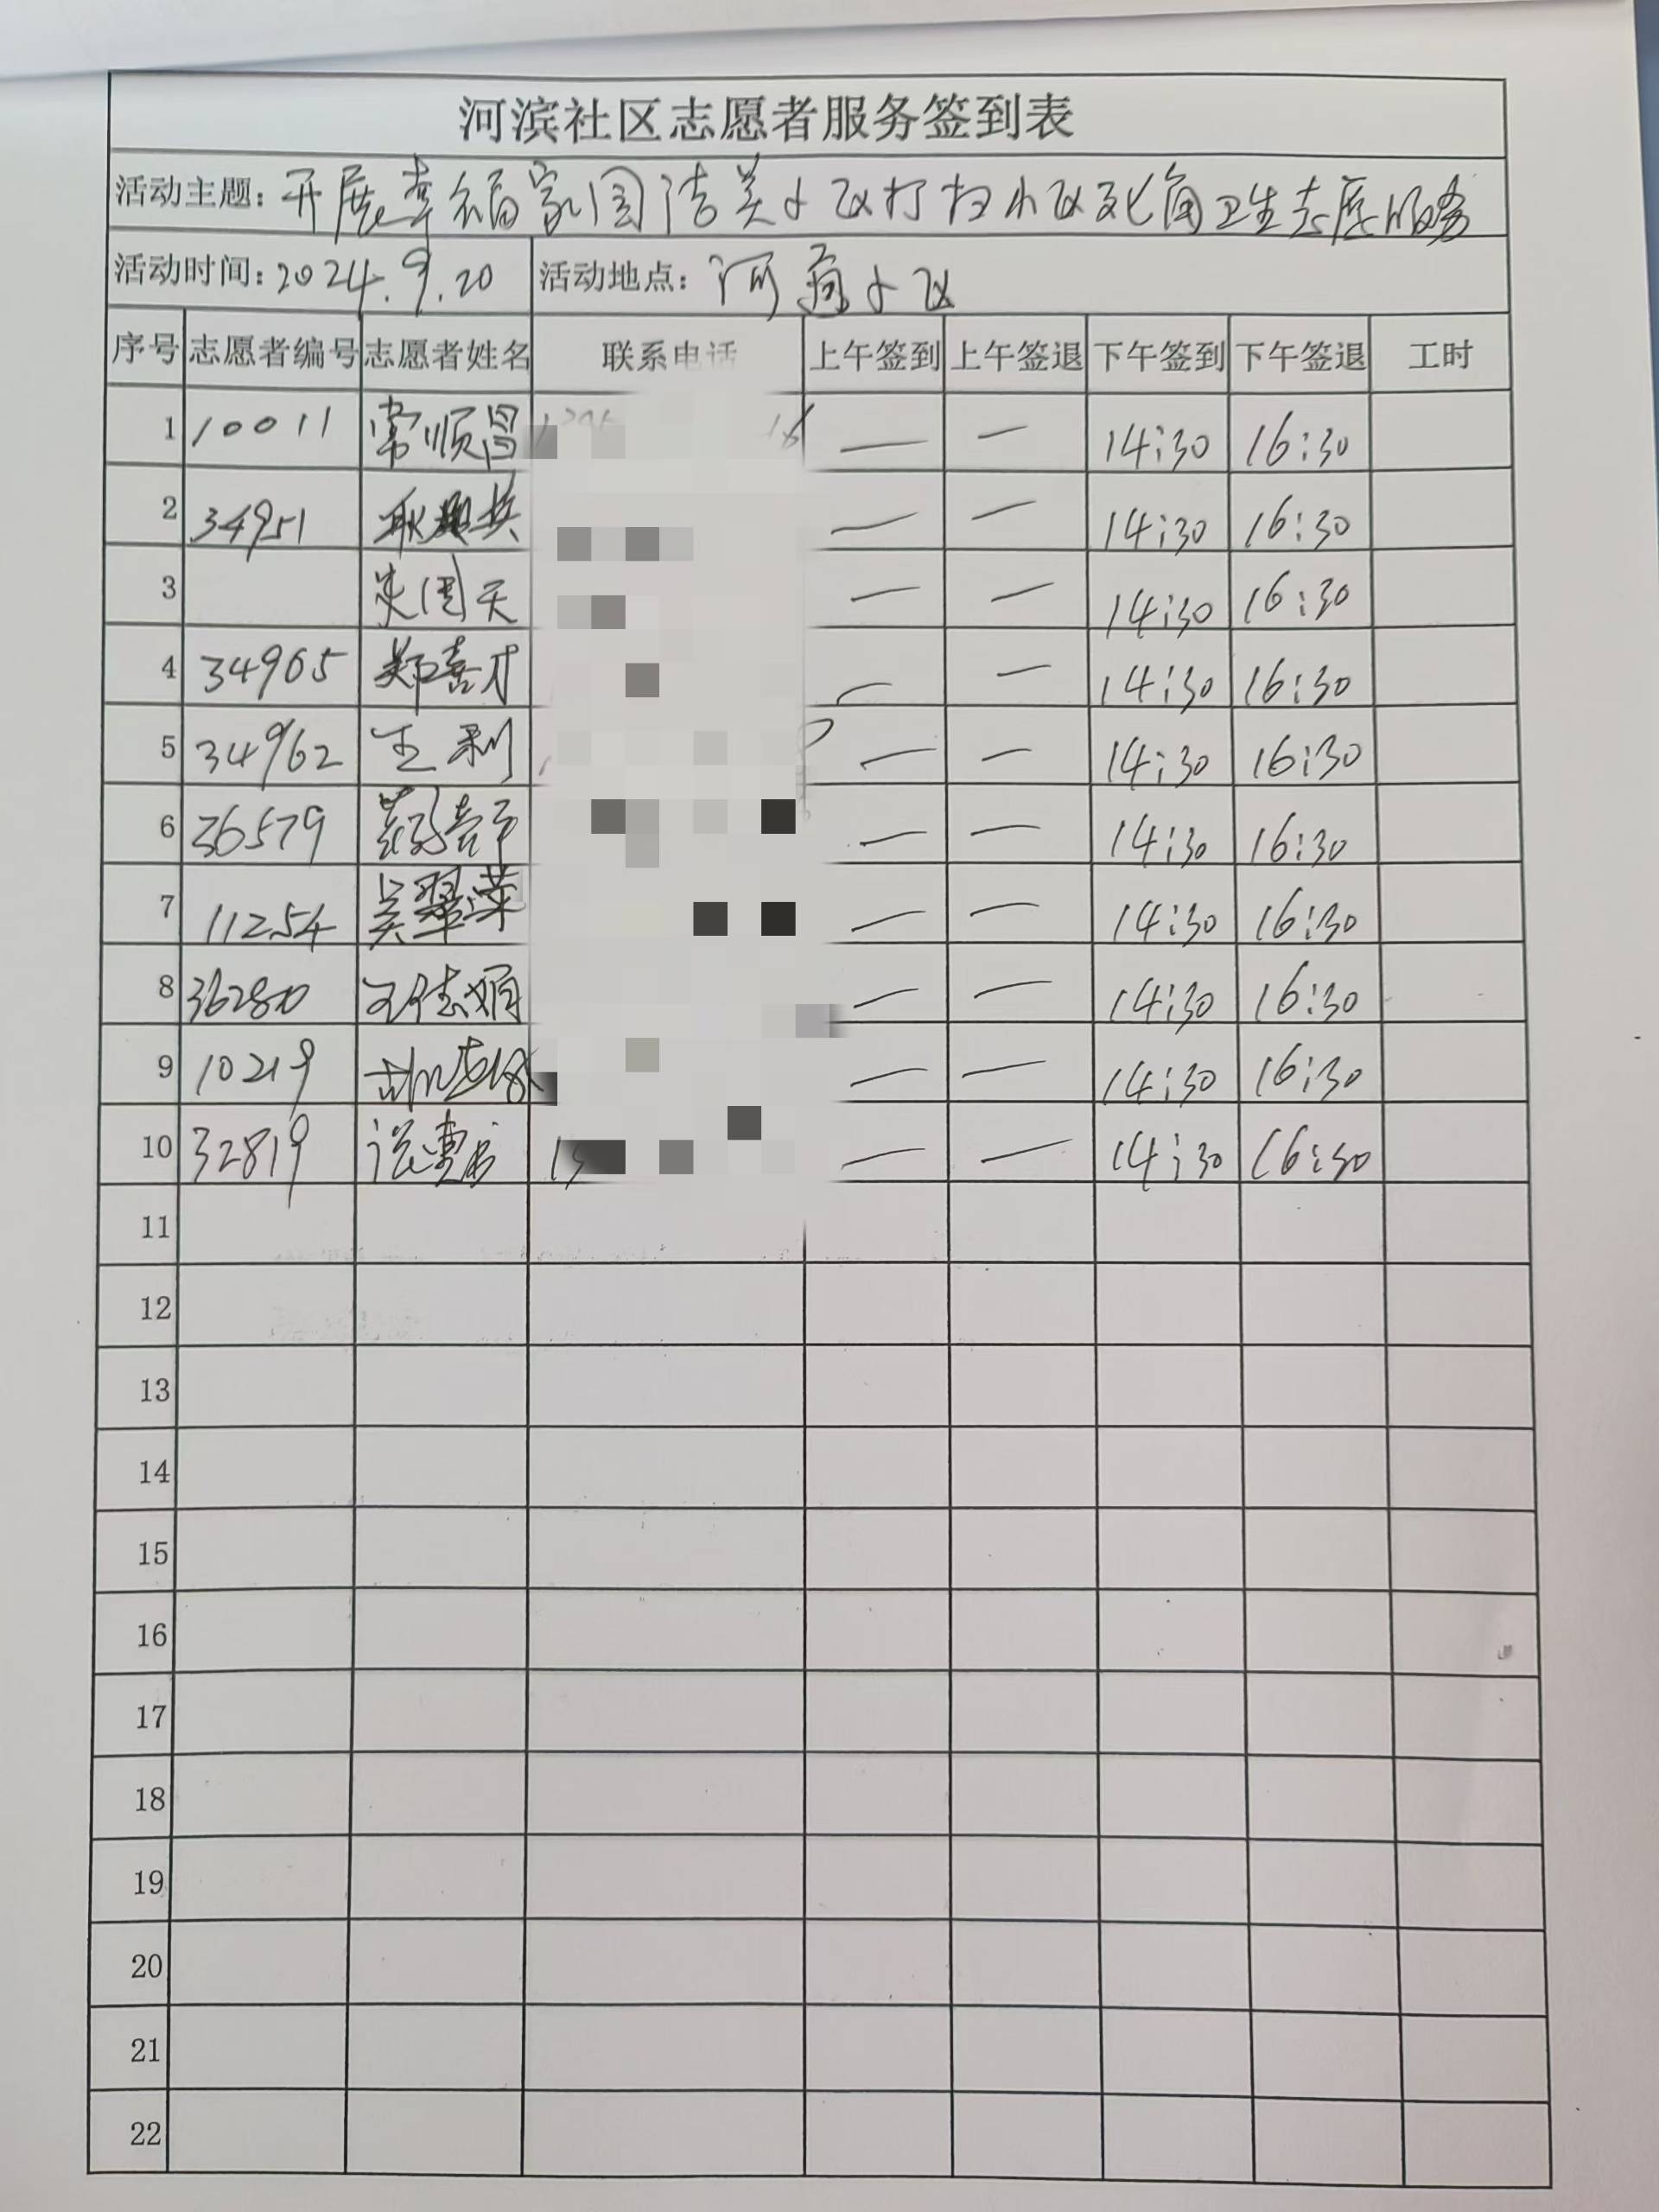 河滨社区志愿者服务签到表
活动主题：开展幸福家园洁美小区打扫小区死角卫生志愿服务
活动时间：2024.9.20 活动地点：河 小区
序号 志愿者编号 志愿者姓名 联系电话 上午签到 上午签退 下午签到 下午签退 工时
1 10011 常顺昌 — — 14:30 16:30
2 34951 — — 14:30 16:30
3 — — 14:30 16:30
4 34965 郑喜才 — — 14:30 16:30
5 34962 王利 — — 14:30 16:30
6 36579 — — 14:30 16:30
7 11254 吴翠荣 — — 14:30 16:30
8 36280 王佳娟 — — 14:30 16:30
9 10219 — — 14:30 16:30
10 32819 — — 14:30 16:30
11
12
13
14
15
16
17
18
19
20
21
22